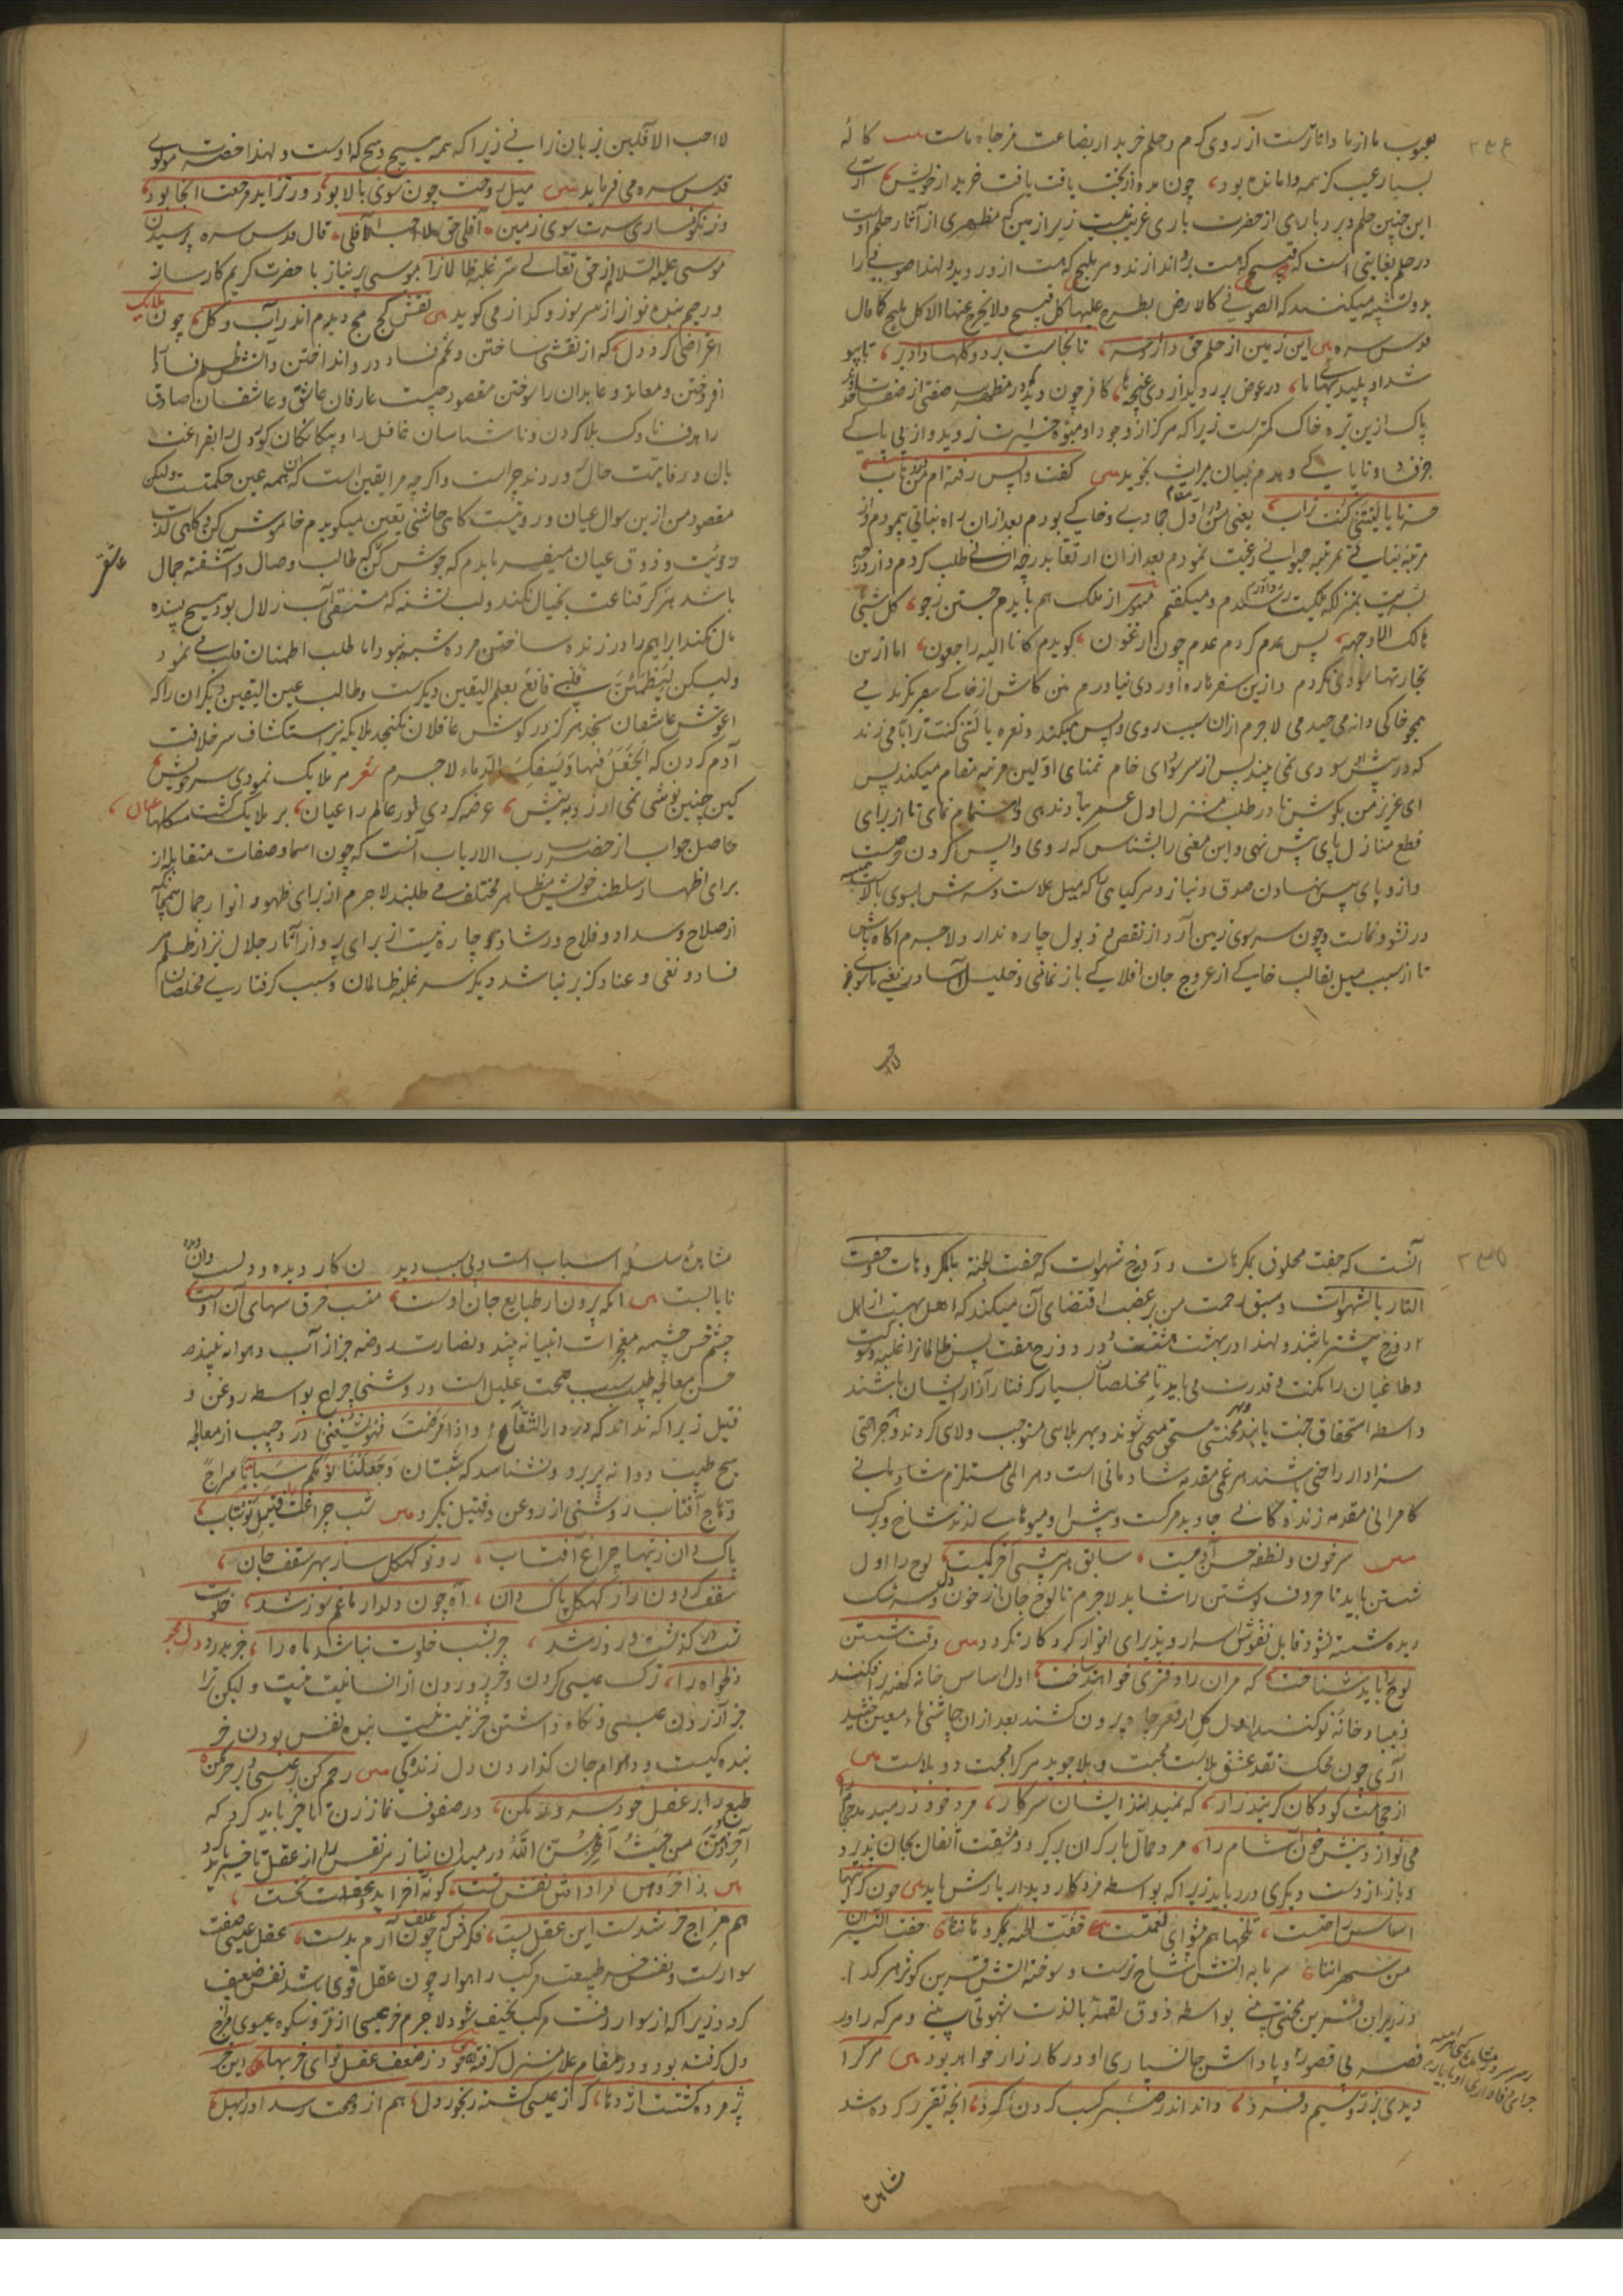 ۲۳۴
بعیوب ما از ما داناترست از روی کرم و حلم خریدار بضاعت مزجاة ماست کاله
بسیار عیب کز همه وامانده بود، چون مرده از بخت یافت خریدار خویش آری
این چنین حلم و بردباری از حضرت باری غریب نیست زیرا زمین که مظهری از آثار حلم اوست
در حلم بغایتی است که قبیح که هست برو اندازند و هر ملیح که هست ازو روید ولهذا صوفی را
بدو تشبیه میکنند که الصوفی کالارض یطرح علیها کل قبیح ولا یخرج عنها الا کل ملیح کما قال
قدس سره این زمین از حلم حق دارد اثر، تا نجاست برد و گلها داد بر، تا بپو
شد او پلیدیهای ما، در عوض بر روید از وی غنچه ها، کافر چون دید کو در مظهریت صفتی از صفات
پاک ازین تیره خاک کمترست زیرا که هرگز از وجود او میوه خیرات نروید و از پی پاکی
جز فساد و ناپاکی وهدم بنیان مراتب نجوید گفت واپس رفته ام من در ذهاب
حسرتا یا لیتنی کنت تراب یعنی من در اول مقام جمادی و خاکی بودم بعد ازان راه نباتی پیمودم و از
مرتبه نباتی بمرتبه حیوانی رغبت نمودم بعد ازان ارتقا بدرجه انسانی طلب کردم و از درجه
بشریت بمنزلکه ملکیت رو آوردم و میگفتم وز ملک هم بایدم جستن ز جو، کل شیء
هالک الا وجهه، پس عدم گردم عدم چون ارغنون، گویدم کانا الیه راجعون، اما ازین
تجارتها سودی نکردم و ازین سفر ره آوردی نیاوردم من کاش از خاکی سفر نگزیدمی
همچو خاکی دانه می چیدمی لاجرم ازان سبب روی واپس میکند و نعره یا لیتنی کنت ترابا می زند
که در پیش سودی نمی بیند پس از سر سودای خام تمنای اولین مرتبه مقام میکند پس
ای عزیز من بکوش تا در طلب منزل اول عمر بباد ندهی و اهتمام نمای تا از برای
قطع منازل پای پیش نهی و این معنی را بشناس که روی واپس کردن حرصست
و آزو پای پس نهادن صدق و نیاز و هر گیاهی را که میل علاست و سرش بسوی بالاست همیشه
در نشو و نماست و چون سر سوی زمین آرد از نقص و ذبول چاره ندارد لاجرم آگاه باش
تا از سبب میل بقالب خاکی از عروج جان افلاکی باز نمانی و خلیل آسا در نفی ماسوی
لا احب
لا احب الآفلین بر زبان رانی زیرا که همه هیچ و هیچ که اوست ولهذا حضرت مولوی
قدس سره می فرماید میل روحت چون سوی بالا بود، در تزاید مرجعت آنجا بود
ور نگونساری سرت سوی زمین، آفلی حق لا احب الآفلین، قال قدس سره پرسیدن
موسی علیه السلام از حق تعالی سر غلبه ظالمانرا موسی پر نیاز با حضرت کریم کارساز
و رحیم بنده نواز از سر سوز و گداز می گوید نقش کج مج دیدم اندر آب و گل، چون ملایک
اعتراضی کرد دل، که از نقشی ساختن و تخم فساد درو انداختن و آتش ظلم و فساد
افروختن و معابد و عابدان را سوختن مقصود چیست عارفان عاشق و عاشقان صادق
را هدف ناوک بلا کردن و ناشناسان غافل را و بیگانگان کور دل را بفراغت
بال و رفاهیت حال پروردن چراست و اگر چه مرا یقین است که آن همه عین حکمتست ولیکن
مقصود من ازین سوال عیان و رویتست گاهی چاشنی یقین میگویدم خاموش کن و گاهی لذت
رویت و ذوق عیان میفرمایدم که جوش کن که طالب وصال و آشفته جمال عاشق
باشد هرگز قناعت بخیال نکند و لب تشنه که مستسقی آب زلال بود هیچ بسنده
بآل نکند ابراهیم را در زنده ساختن مرده شبهه نبود اما طلب اطمینان قلب می نمود
ولیکن لیطمئن قلبی قانع بعلم الیقین دیگرست و طالب عین الیقین دیگر آن را که
آغوش عاشقان سنجد هرگز در گوش غافلان نگنجد ملایکه نیز استکشاف سر خلافت
آدم کردن که اتجعل فیها ویسفک الدماء لاجرم شعر مر ملایک نمودی سر خویش
کین چنین نوشی نمی ارزد به نیش، عرضه کردی نور عالم را عیان، بر ملایک گشت مشکلها عیان
حاصل جواب از حضرت رب الارباب آنست که چون اسما و صفات متقابله از
برای اظهار سلطنت خویش مظاهر مختلف می طلبند لاجرم از برای ظهور انوار جمال همچنانکه
از صلاح و سداد و فلاح و رشاد چاره نیست از برای پرواز آثار جلال نیز از ظلم و
فساد و نفی و عناد گزیر نباشد دیگر سر غلبه ظالمان و سبب گرفتاری مخلصان
۲۳۵
آنست که جنت محفوف بمکرهات و دوزخ شهوات که حفت الجنة بالمکروهات و حفت
النار بالشهوات و سبق رحمت من بر غضب اقتضای آن میکند که اهل بهشت از اهل
دوزخ بیشتر باشند ولهذا در بهشت هشت و در دوزخ هفت پس ظالمانرا غلبه و شوکت
و طاغیان را مکنت و قدرت می باید تا مخلصان بسیار گرفتار آزار ایشان باشند
و اسطه استحقاق جنت یابند و بهر محنتی مستحق منحتی شوند و بهر بلایی مستوجب ولای گردند و بهر جراحتی
سزاوار راحتی باشند هر غمی مقدمه شادمانی است و هر المی مستلزم شادمانی
کامرانی مقدمه زندگانی جاوید مرگست و پیش او میوهای لذیذ شاخ و برگ
سر خون و نطفه حسن آدمیست، سابق هر بیشی آخر کمیست، لوح را اول
شستن باید تا حروف نوشتن را شاید لاجرم تا لوح جان از خون دل و سرشک
دیده شسته نشود قابل نقوش اسرار و پذیرای انوار کردگار نگردد وقت شستن
لوح را باید شناخت، که مر آن را دفتری خواهند ساخت اول اساس خانه کهنه را فکنند
ز بنیاد و خانه نو کنند اول گل از قعر چاه بیرون کشند بعد ازان چاشنی ماء معین چشید
آری چون محک نقد عشق بلاست محبت و بلا جوید هر کرا محبت دو بلاست
از حجامت کودکان گریند زار، که نمیدانند ایشان سر کار، مرد خود زر میدهد حجام را
می نوازد نیش خون آشام را، مرد حمال بار گران بر گیرد و مشقت اثقال بجان پذیرد
و باز از دست دیگری در رباید زیرا که بواسطه مزد کار دیدار بارش باید چون گرانیها
اساس راحتست، تلخها هم پیشوای نعمتست، حفت الجنه بمکروهاتنا، حفت النیران
من شهواتنا، سرمایه آتش شاخ ترست و سوخته آتش قرین کوثر هر کرا
در زیران قرین محنتی بینی بواسطه ذوق لقمه یا لذت شهوتی بینی و هر که را در
قصر بی قصور پاداش جانسپاری او در کارزار خواهد بود هر کرا
دیدی بزر و سیم فرد، داند اندر صبر کسب کردن کرد، آنچه تقریر کرده شد
مشاهده
مشاهده سلسله اسباب است و بی سبب دید آن کار دیده و دلست و آن دیده
نا پابست آنکه بیرون از طبایع جان اوست، منصب خرق سببهای آن اوست
چشم حس چشمه معجزات انبیا نه بیند و نضارت روضه جز از آب و هوا نه بیند
حس معالجه طبیب سبب صحت علیل است و روشنی چراغ بواسطه روغن و
فتیل زیرا که نداند که در دار الشفاء واذا مرضت فهو یشفینی درد حبیب از معالجه
هیچ طبیب دوا نپذیرد و نشناسد که شبستان وجعلنا نومکم سباتا سراجا
وهاج آفتاب روشنی از روغن و فتیل نگیرد شب چراغت را فتیل نو بتاب
پاک دان زینها چراغ آفتاب، رو تو کهگل ساز بهر سقف جان،
سقف گردون را ز کهگل پاک دان، آه چون دلدار ما غم سوز شد، خلوت
شب در گذشت و روز شد، جز بشب خلوت نباشد ماه را، جز بدرد دل مجو
دلخواه را، ترک عیسی کردن و خر پروردن از انسانیت نیست ولیکن ترا
جز آزردن عیسی و نگاه داشتن خر نیت نیست بنده نفس بودن خر
بندگیست و در دوام جان گذاردن دل زندگی رحم کن بر عیسی و بر خر مکن،
طبع را بر عقل خود سرور مکن، در صفوف نماز زن را تاخیر باید کرد که
اخروهن من حیث اخرهن الله در میدان نیاز نیز نفس را از عقل تاخیر باید کرد
ز اخروهن مرادش نفس تست، کو به آخر باید و عقلت نخست
هم مزاج خر شدست این عقل پست، فکرش که چون علف آرم بدست، عقل عیسی صفت
سوارست و نفس خر طبیعت مرکب راهوار چون عقل قوی باشد نفس ضعیف
گردد زیرا که از سوار زفت مرکب نحیف شود لاجرم خر عیسی از فر و شکوه عیسوی مزاج
دل گرفته بود و در مقام علا منزل گرفته وز ضعیفی عقل تو ای خر بها، این خر
پژمرده گشتست اژدها، گر ز عیسی گشته رنجور دل، هم ازو صحت رسد او را مهل